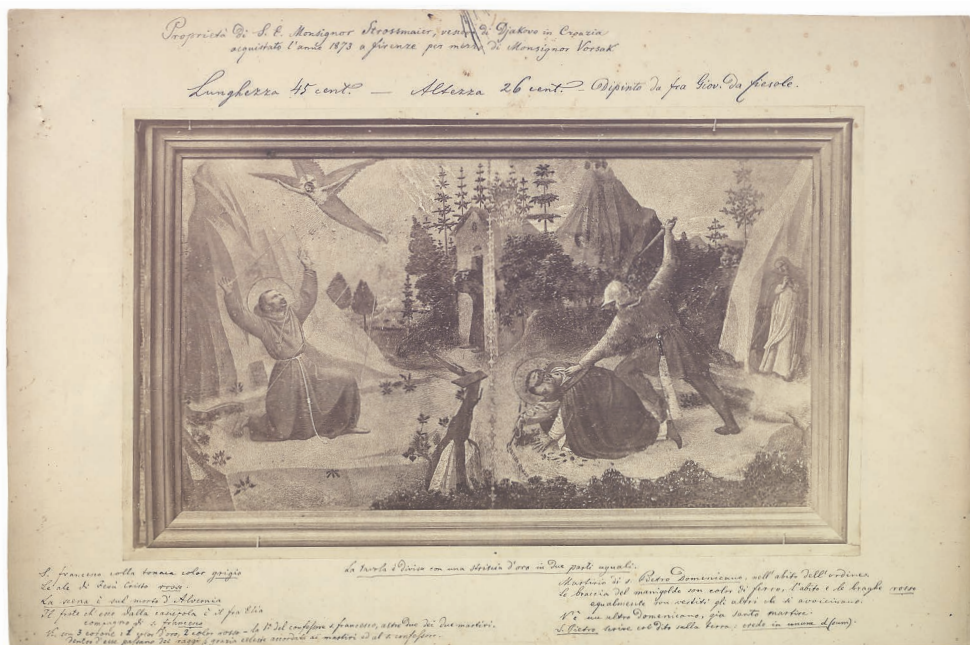 Proprietà Di S. E. Monsignor Strossmaier, vescovo di Djakovo in Croazia
acquistato l'anno 1873 a firenze per mezzo di Monsignor Vorsak
Lunghezza 45 cent. — Altezza 26 cent. — Odipinto da fra Giov. da fiesole.
la tavola è divisa con una striscia d'oro in due parti uguali.
S. francesco colla tonaca color grigio
Le ale di Gesù Cristo rosse.
La scena è sul monte d'Alvernia
Il frate che esce dalla è il fra Elia
compagno di S. francesco
3 corone 1 d'oro, 2 color rosa — la 1ª del confessore S francesco, altre due dei due martiri.
Martirio di S. Pietro Domenicano, nell'abito dell'ordine
Le braccia del manigoldo son color di ferro, l'abito e le braghe rosse
egualmente son vestiti gli altri che si avvicinano.
V'è un altro domenicano, già santo martire.
S. Pietro scrive col dito sulla terra: credo in unum d